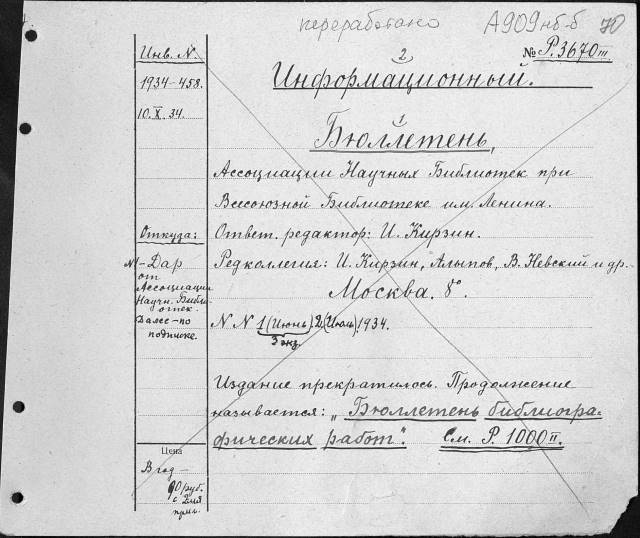 переработано А909нб-б 70
Инв. N.
1934-458.
10.X.34.
№ Р.3670III
2
Информационный.
1
Бюллетень,
Ассоциации Научных Библиотек при
Всесоюзной Библиотеке им. Ленина.
Ответ. редактор: И. Кирзин.
Редколлегия: И. Кирзин, Алыпов, В. Невский и др.
Москва. 8°.
N N 1 (Июнь). 2 (Июль). 1934.
3 экз.
Издание прекратилось. Продолжение
называется: „Бюллетень библиогра-
фических работ". См. Р. 1000II.
Откуда:
N1 - Дар
от
Ассоциации
Научн. Библи-
отек.
Далее - по
подписке.
Цена
В год -
90 руб.
с